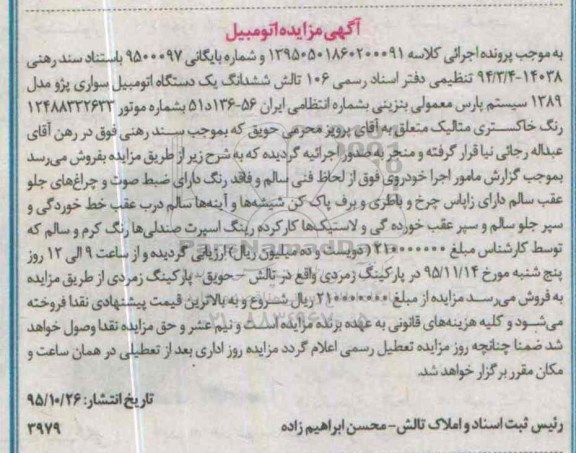 آگهی مزایده اتومبیل
به موجب پرونده اجرائی کلاسه ۱۳۹۵۰۵۰۱۸۶۰۲۰۰۰۹۱ و شماره بایگانی ۹۵۰۰۰۹۷ باستناد سند رهنی
۱۴۰۳۸-۹۴/۳/۴ تنظیمی دفتر اسناد رسمی ۱۰۶ تالش ششدانگ یک دستگاه اتومبیل سواری پژو مدل
۱۳۸۹ سیستم پارس معمولی بنزینی بشماره انتظامی ایران ۵۶-۱۳۶د۵۱ بشماره موتور ۱۲۴۸۸۳۲۲۶۳۳
رنگ خاکستری متالیک متعلق به آقای پرویز محرمی حویق که بموجب سند رهنی فوق در رهن آقای
عبداله رجائی نیا قرار گرفته و منجر به صدور اجرائیه گردیده که به شرح زیر از طریق مزایده بفروش می‌رسد
بموجب گزارش مامور اجرا خودروی فوق از لحاظ فنی سالم و فاقد رنگ دارای ضبط صوت و چراغ‌های جلو
عقب سالم دارای زاپاس چرخ و باطری و برف پاک کن شیشه‌ها و آینه‌ها سالم درب عقب خط خوردگی و
سپر جلو سالم و سپر عقب خورده گی و لاستیک‌ها کارکرده رینگ اسپرت صندلی‌ها رنگ کرم و سالم که
توسط کارشناس مبلغ ۲۱۰۰۰۰۰۰۰ (دویست و ده میلیون ریال) ارزیابی گردیده و از ساعت ۹ الی ۱۲ روز
پنج شنبه مورخ ۹۵/۱۱/۱۴ در پارکینگ زمردی واقع در تالش – حویق – پارکینگ زمردی از طریق مزایده
به فروش می‌رسد مزایده از مبلغ ۲۱۰۰۰۰۰۰۰ ریال شروع و به بالاترین قیمت پیشنهادی نقدا فروخته
می‌شود و کلیه هزینه‌های قانونی به عهده برنده مزایده است و نیم عشر و حق مزایده نقدا وصول خواهد
شد ضمنا چنانچه روز مزایده تعطیل رسمی اعلام گردد مزایده روز اداری بعد از تعطیلی در همان ساعت و
مکان مقرر برگزار خواهد شد.
تاریخ انتشار: ۹۵/۱۰/۲۶
رئیس ثبت اسناد و املاک تالش – محسن ابراهیم زاده
۳۹۷۹